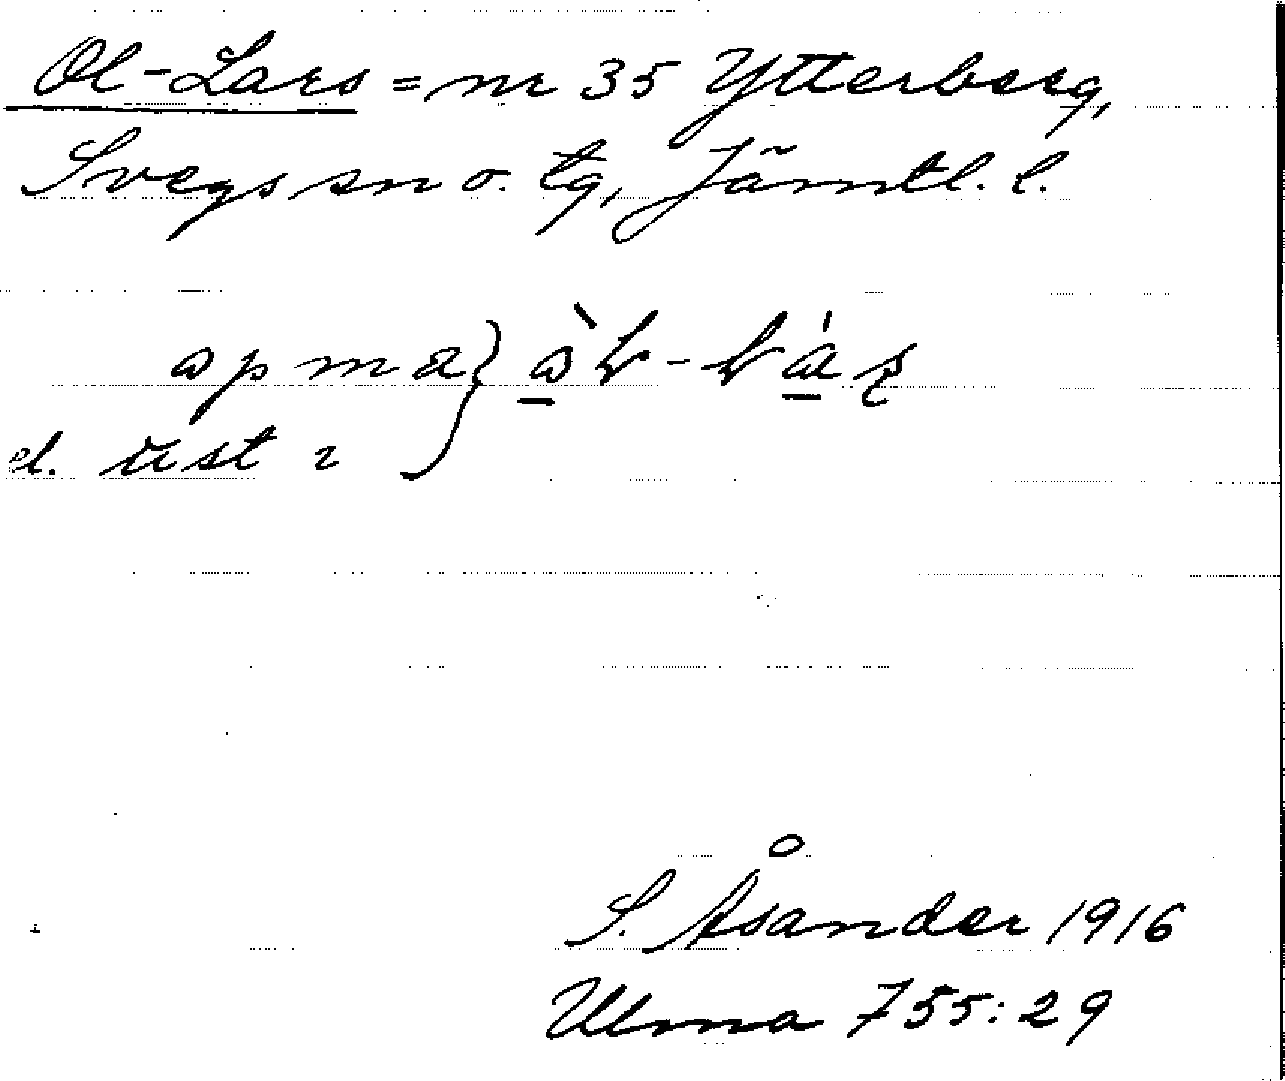 Ol-Lars = nr 35 Ytterberg,
Svegs sn o. tg, Jämtl. l.
opma
el. ust
S. Åsander 1916
Ulma 755:29